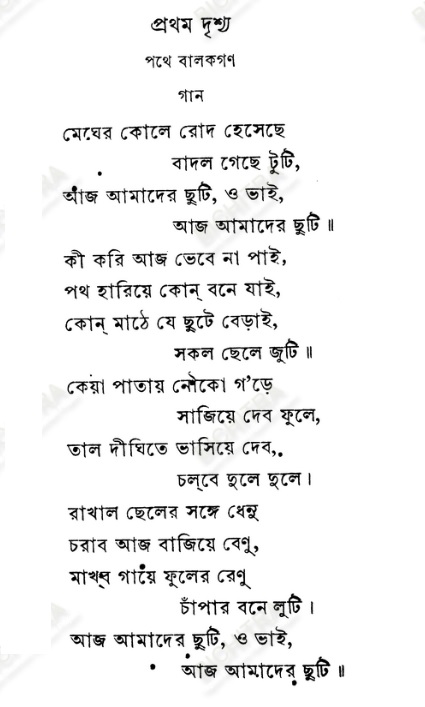 প্রথম দৃশ্য
পথে বালকগণ
গান
মেঘের কোলে রোদ হেসেছে
বাদল গেছে টুটি,
আজ আমাদের ছুটি, ও ভাই,
আজ আমাদের ছুটি ॥
কী করি আজ ভেবে না পাই,
পথ হারিয়ে কোন্ বনে যাই,
কোন্ মাঠে যে ছুটে বেড়াই,
সকল ছেলে জুটি ॥
কেয়া পাতায় নৌকো গ'ড়ে
সাজিয়ে দেব ফুলে,
তাল দীঘিতে ভাসিয়ে দেব,
চল্‌বে দুলে দুলে।
রাখাল ছেলের সঙ্গে ধেনু
চরাব আজ বাজিয়ে বেণু,
মাখব গায়ে ফুলের রেণু
চাঁপার বনে লুটি।
আজ আমাদের ছুটি, ও ভাই,
আজ আমাদের ছুটি ॥